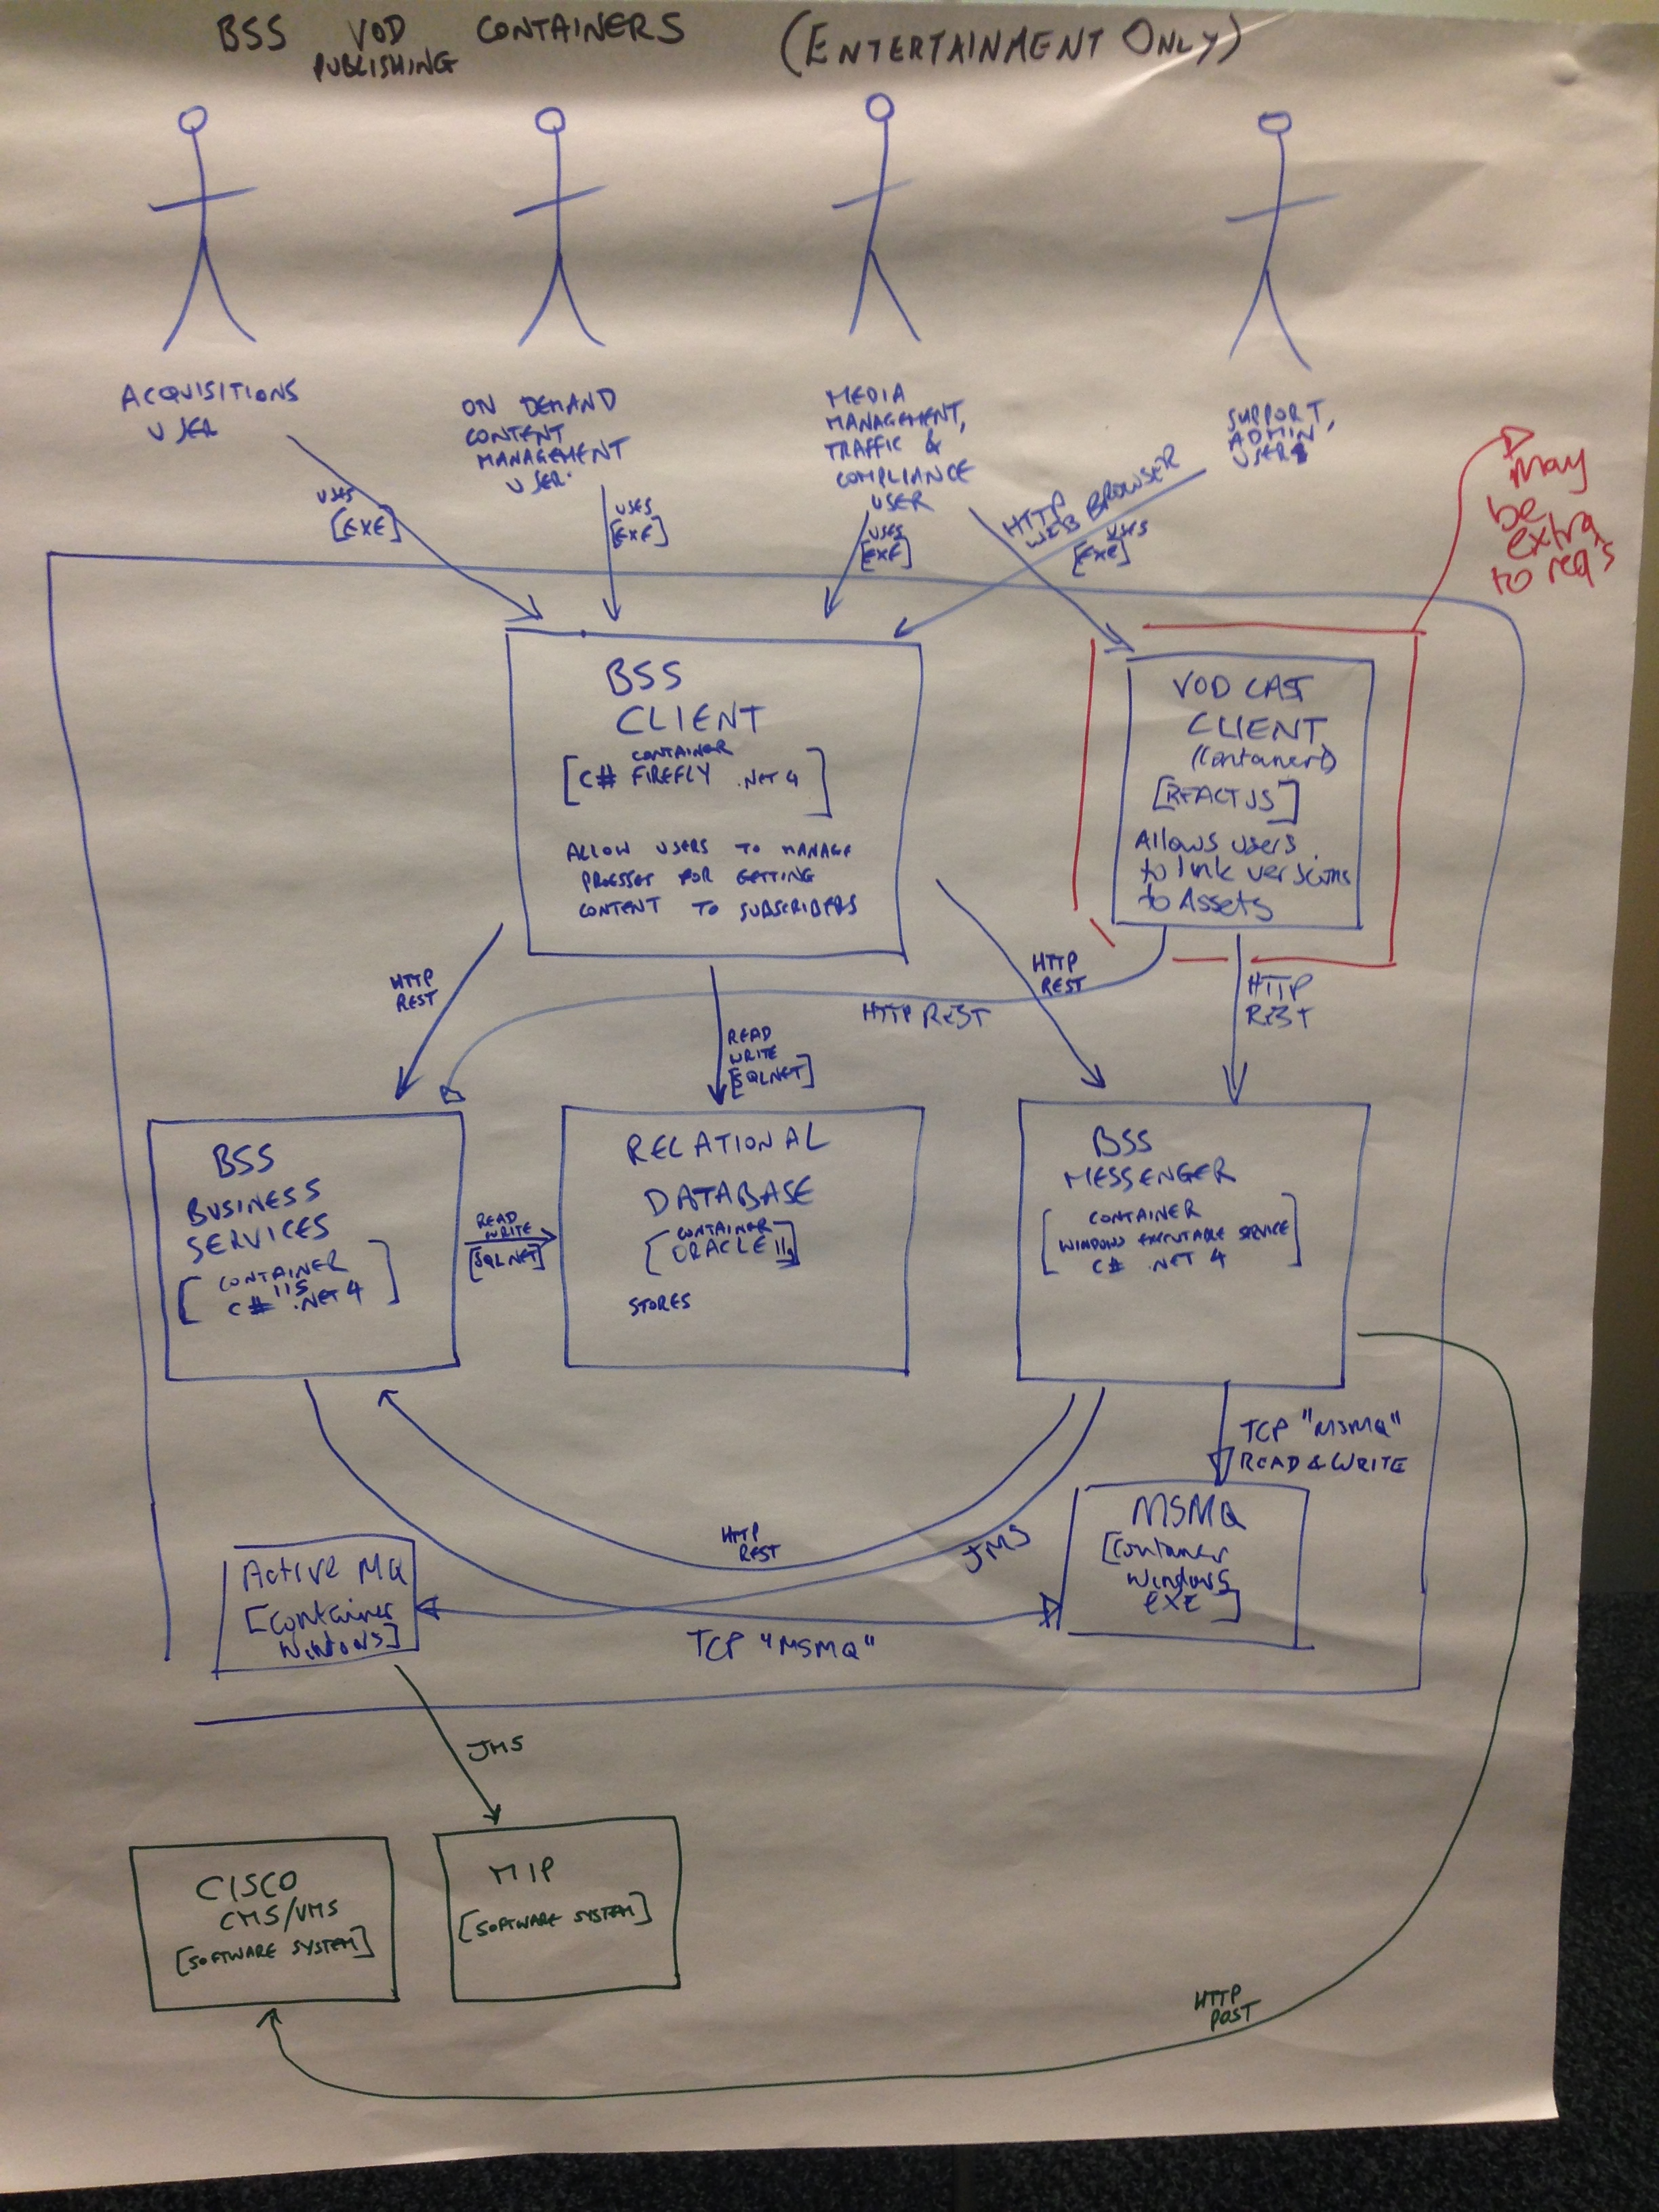 BSS VOD CONTAINERS (ENTERTAINMENT ONLY)
PUBLISHING
ACQUISITIONS
USER
ON DEMAND
CONTENT
MANAGEMENT
USER
MEDIA
MANAGEMENT,
TRAFFIC &
COMPLIANCE
USER
SUPPORT,
ADMIN
USERS
May
be
extra
to req's
USES
[EXE]
USES
[EXE]
USES
[EXE]
HTTP
WEB BROWSER
USES
[EXE]
BSS
CLIENT
CONTAINER
[C# FIREFLY .NET 4]
ALLOW USERS TO MANAGE
PROCESSES FOR GETTING
CONTENT TO SUBSCRIBERS
VOD CAST
CLIENT
(Container)
[REACT JS]
Allows users
to link versions
to Assets
HTTP
REST
READ
WRITE
[SQLNET]
HTTP REST
HTTP
REST
HTTP
REST
BSS
BUSINESS
SERVICES
[CONTAINER
IIS
C# .NET 4]
READ
WRITE
[SQLNET]
RELATIONAL
DATABASE
[CONTAINER
ORACLE 11g]
STORES
BSS
MESSENGER
[CONTAINER
WINDOWS EXECUTABLE SERVICE
C# .NET 4]
TCP "MSMQ"
READ & WRITE
HTTP
REST
JMS
Active MQ
[Container
Windows]
MSMQ
[Container
Windows
EXE]
TCP "MSMQ"
JMS
CISCO
CMS/VMS
[SOFTWARE SYSTEM]
MIP
[SOFTWARE SYSTEM]
HTTP
POST